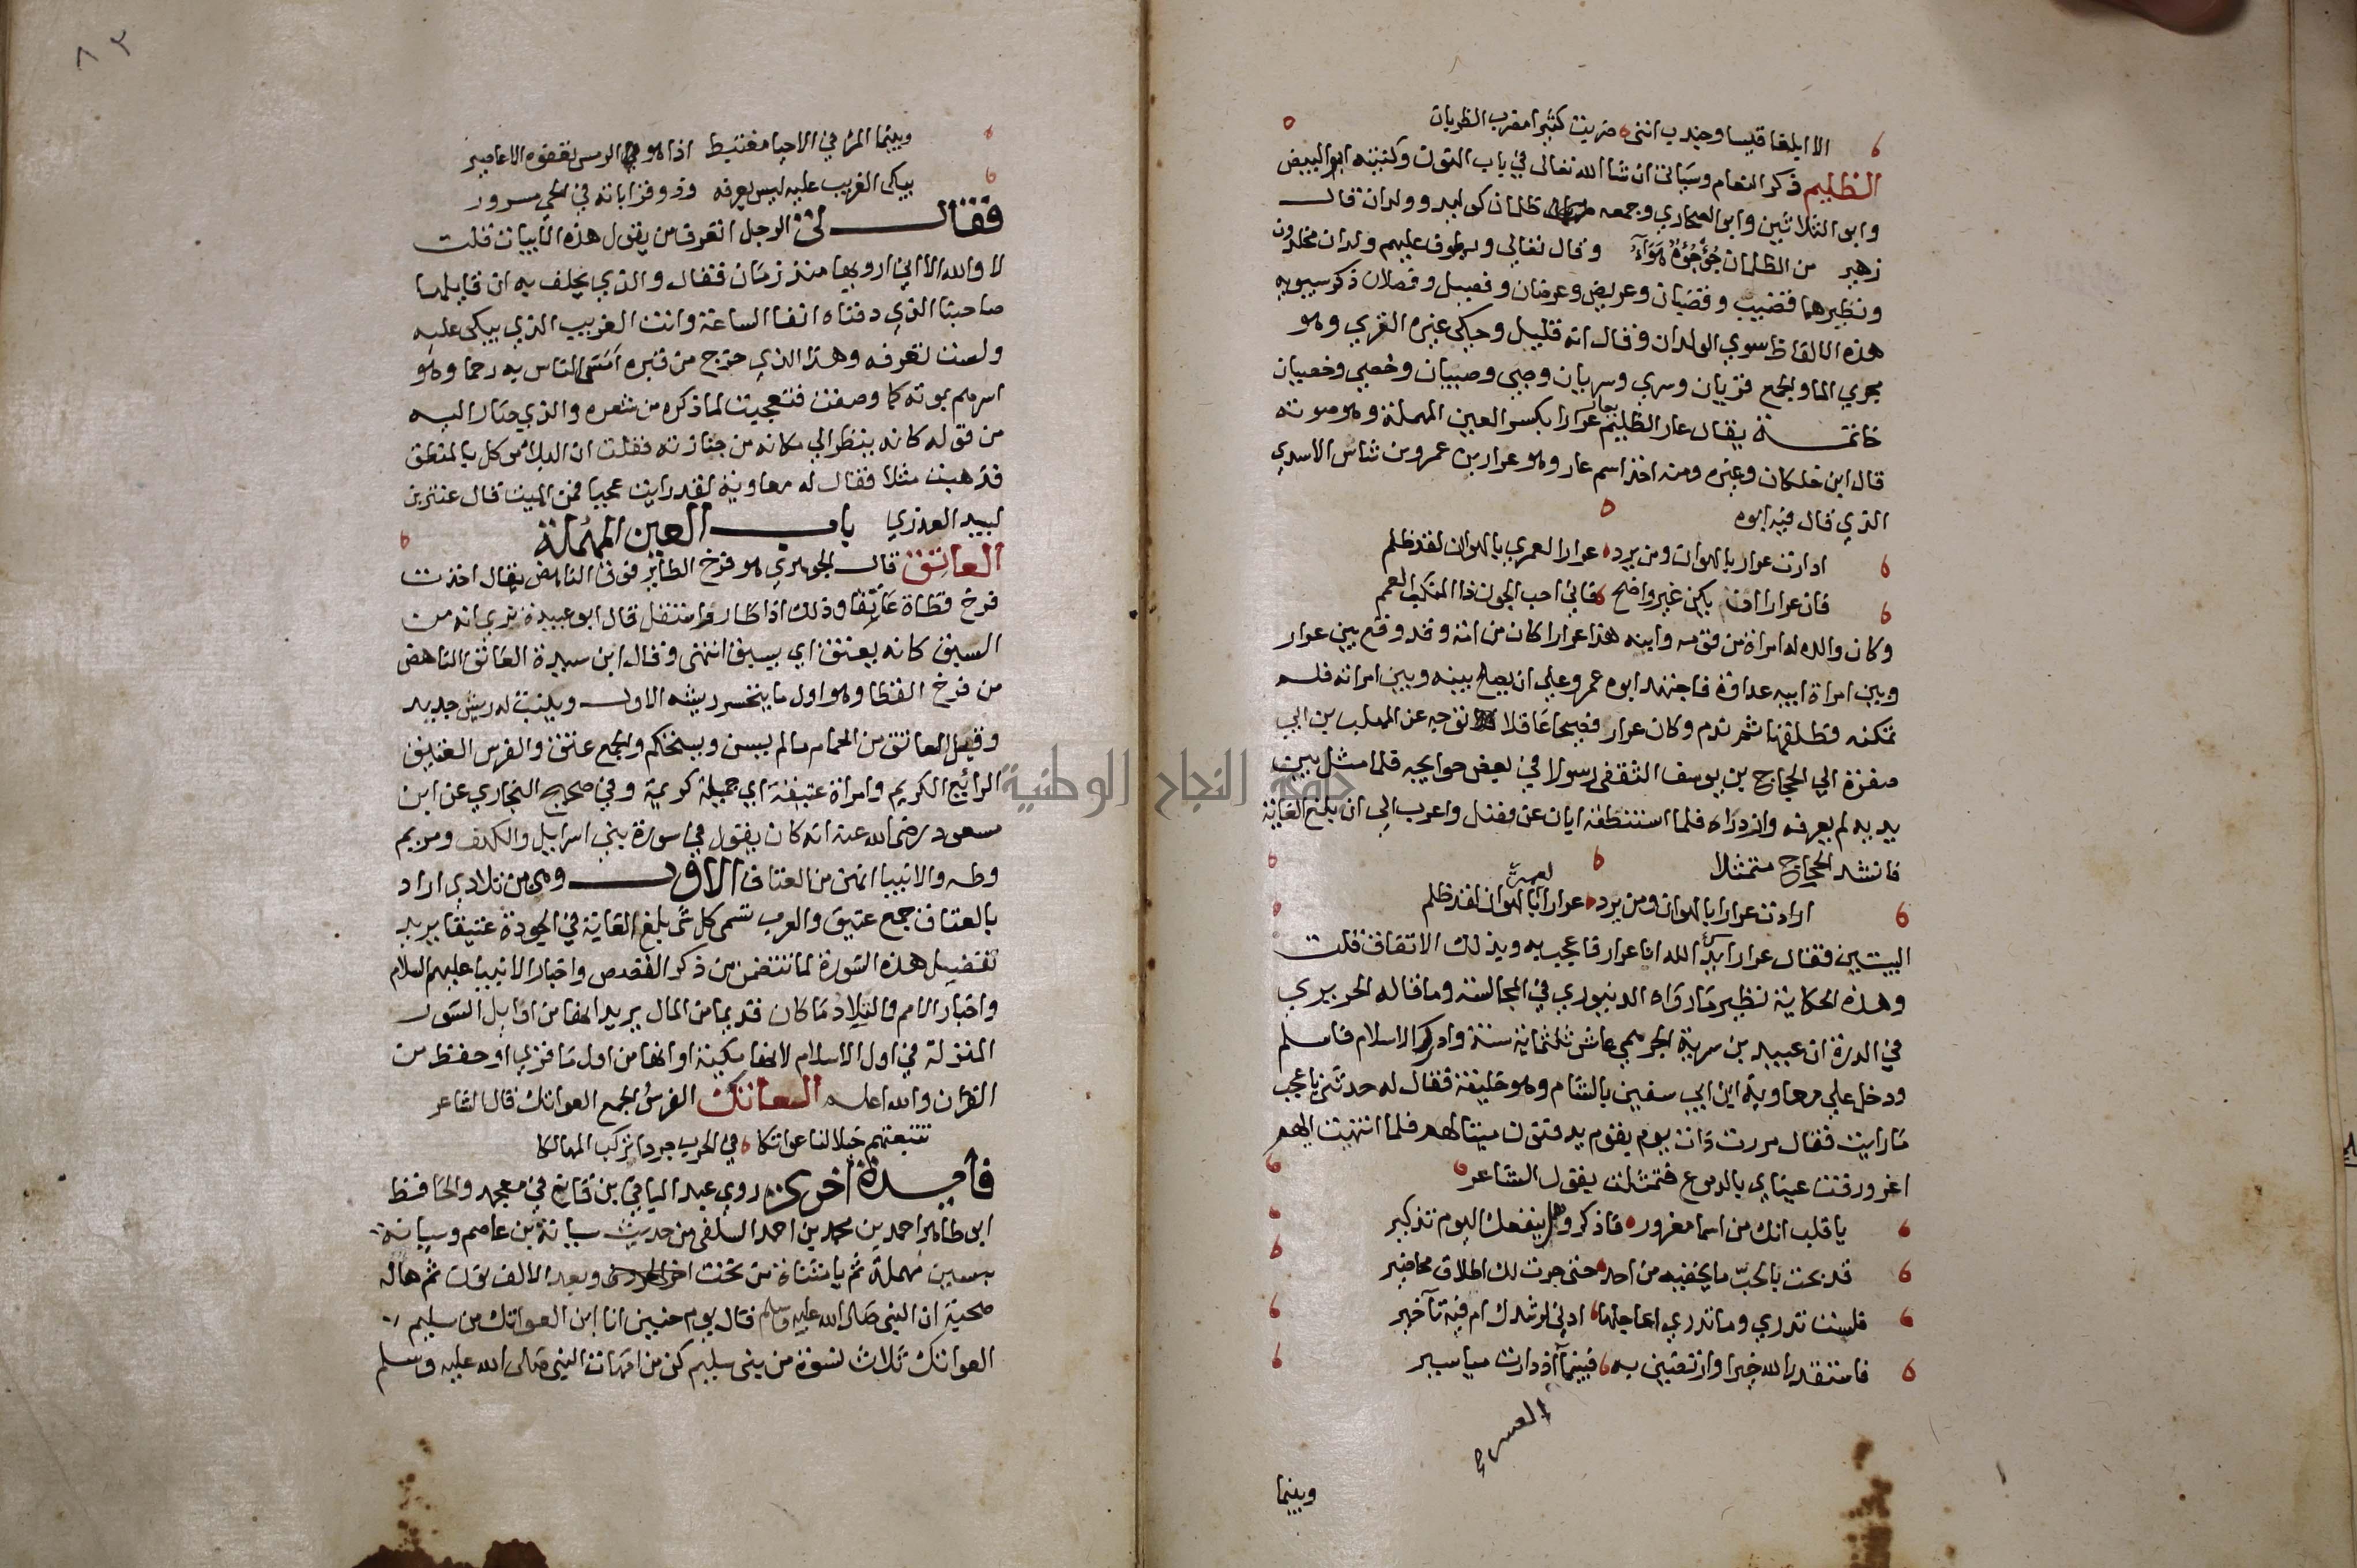 الا ابلغا قيسا وجندب انني ضربت كثيرا مضرب الظربان
الظليم ذكر النعام وسياتي ان شا الله تعالى في باب النون وكنيته ابو البيض
وابو الثلاثين وابو الصحاري وجمعه ظلمان كوليد وولدان قال
زهير من الظلمان جؤجؤه هواء وقال تعالي ويطوف عليهم ولدان مخلدون
ونظيرهما قضيب وقضبان وعريض وعرضان وفصيل وفصلان ذكر سيبويه
هذه الالفاظ سوي الولدان وقال انه قليل وحكي غيره القري وهو
مجري الما والجمع قريان وسري وسريان وصبي وصبيان وخصي وخصيان
خاتمة يقال عار الظليم يعار عرارا بكسر العين المهملة وهو صوته
قال ابن خلكان وغيره ومنه اخذ اسم عار وهو عرار بن عمرو بن شاس الاسدي
الذي قال فيه ابوه
ادارت عرار بالهوان ومن يرد عرارا لعمري بالهوان لقد ظلم
فان عرارا ان يكن غير واضح فاني احب الجون ذا المنكب العمم
وكان والده له امراة من قومه وابنه هذا عرارا كان من امة وقد وقع بين عرار
وبين امراة ابيه عداوة فاجتهد ابوه عمرو علي ان يصلح بينه وبين امراته فلم
تمكنه فطلقها ثم ندم وكان عرار فصيحا عاقلا توجه عن المهلب بن ابي
صفرة الي الحجاج بن يوسف الثقفي رسولا في بعض حوايجه فلما مثل بين
يديه لم يعرفه وازدراه فلما استنطقه ابان عن فضل واعرب الي ان بلغ الغاية
فانشد الحجاج متمثلا
ارادت عرارا بالهوان ومن يرد عرارا لعمري بالهوان لقد ظلم
البيتين فقال عرار ايدك الله انا عرار فاعجب به وبذلك الاتفاق قلت
وهذه الحكاية نظير ما رواه الدينوري في المجالسة وما قاله الحريري
في الدرة ان عبيد بن سرية الجرهمي عاش ثلثماية سنة وادرك الاسلام فاسلم
ودخل علي معاوية ابن ابي سفين بالشام وهو خليفة فقال له حدثني باعجب
ما رايت فقال مررت ذات يوم بقوم يدفنون ميتا لهم فلما انتهيت اليهم
اغرورقت عيناي بالدموع فتمثلت بقول الشاعر
يا قلب انك من اسما مغرور فاذكر وهل ينفعك اليوم تذكير
قد بحت بالحب ما يخفيه من احد حتى جرت لك اطلاق محاضير
فلست تدري وما تدري اعاجلها ادني لرشدك ام فيه تآخير
فاستقدر الله خيرا وارتضين به فبينما اذ دارت مياسير
العسر
وبينما
٨٢
وبينما المر في الاحيا مغتبط اذا هو في الرمس تعفوه الاعاصير
يبكي الغريب عليه ليس يعرفه وذو قرابته في الحي مسرور
فقال لي الرجل اتعرف من يقول هذه الابيات قلت
لا والله الا اني ارويها منذ زمان فقال والذي يحلف به ان قايلها
صاحبنا الذي دفناه انفا الساعة وانت الغريب الذي يبكي عليه
ولست تعرفه وهذا الذي خرج من قبره امس الناس به رحما وهو
اسرهم بموته كما وصفت فتعجبت لما ذكره من شعره والذي صار اليه
من قوله كانه ينظر الي مكانه من جنازته فقلت ان البلا موكل بالمنطق
فذهبت مثلا فقال له معاوية لقد رايت عجبا فمن الميت قال عنتر بن
لبيد العذري باب العين المهملة
العاتق قال الجوهري هو فرخ الطاير فوق الناهض يقال اخذت
فرخ قطاة عاتقا وذلك اذا طار واستقل قال ابو عبيدة نري انه من
السبق كانه يعتق اي يسبق انتهى وقال ابن سيدة العاتق الناهض
من فرخ القطا وهو اول ما ينحسر ريشه الاول وينبت له ريش جديد
وقيل العاتق من الحمام ما لم يسن ويستحكم والجمع عتق والفرس العتيق
الرايع الكريم وامراة عتيقة اي جميلة كريمة وفي صحيح البخاري عن ابن
مسعود رضي الله عنه انه كان يقول في سورة بني اسرايل والكهف ومريم
وطه والانبيا انهن من العتاق الاول وهن من تلادي اراد
بالعتاق جمع عتيق والعرب تسمى كل شي بلغ الغاية في الجودة عتيقا يريد
تفضيل هذه السورة لما تتضمن من ذكر القصص واخبار الانبيا عليهم السلام
واخبار الامم والتلاد ما كان قديما من المال يريد انها من اوايل السور
المنزلة في اول الاسلام لانها مكية او انها من اول ما قري او حفظ من
القران والله اعلم العاتك الفرس الجمع العواتك قال الشاعر
نتبعهم خيلا لنا عواتكا في الحرب جردا تركب المهالكا
فايدة اخري روي عبد الباقي بن قانع في معجمه والحافظ
ابو طاهر احمد بن محمد بن احمد السلفي من حديث سيابة بن عاصم وسيابة
بسين مهملة ثم يا مثناة من تحت وبعد الالف ثم هاله
صحبة ان النبي صلى الله عليه وسلم قال يوم حنين انا ابن العواتك من سليم
العواتك ثلاث نسوة من بني سليم كن من امهات النبي صلى الله عليه وسلم
جامعة النجاح الوطنية